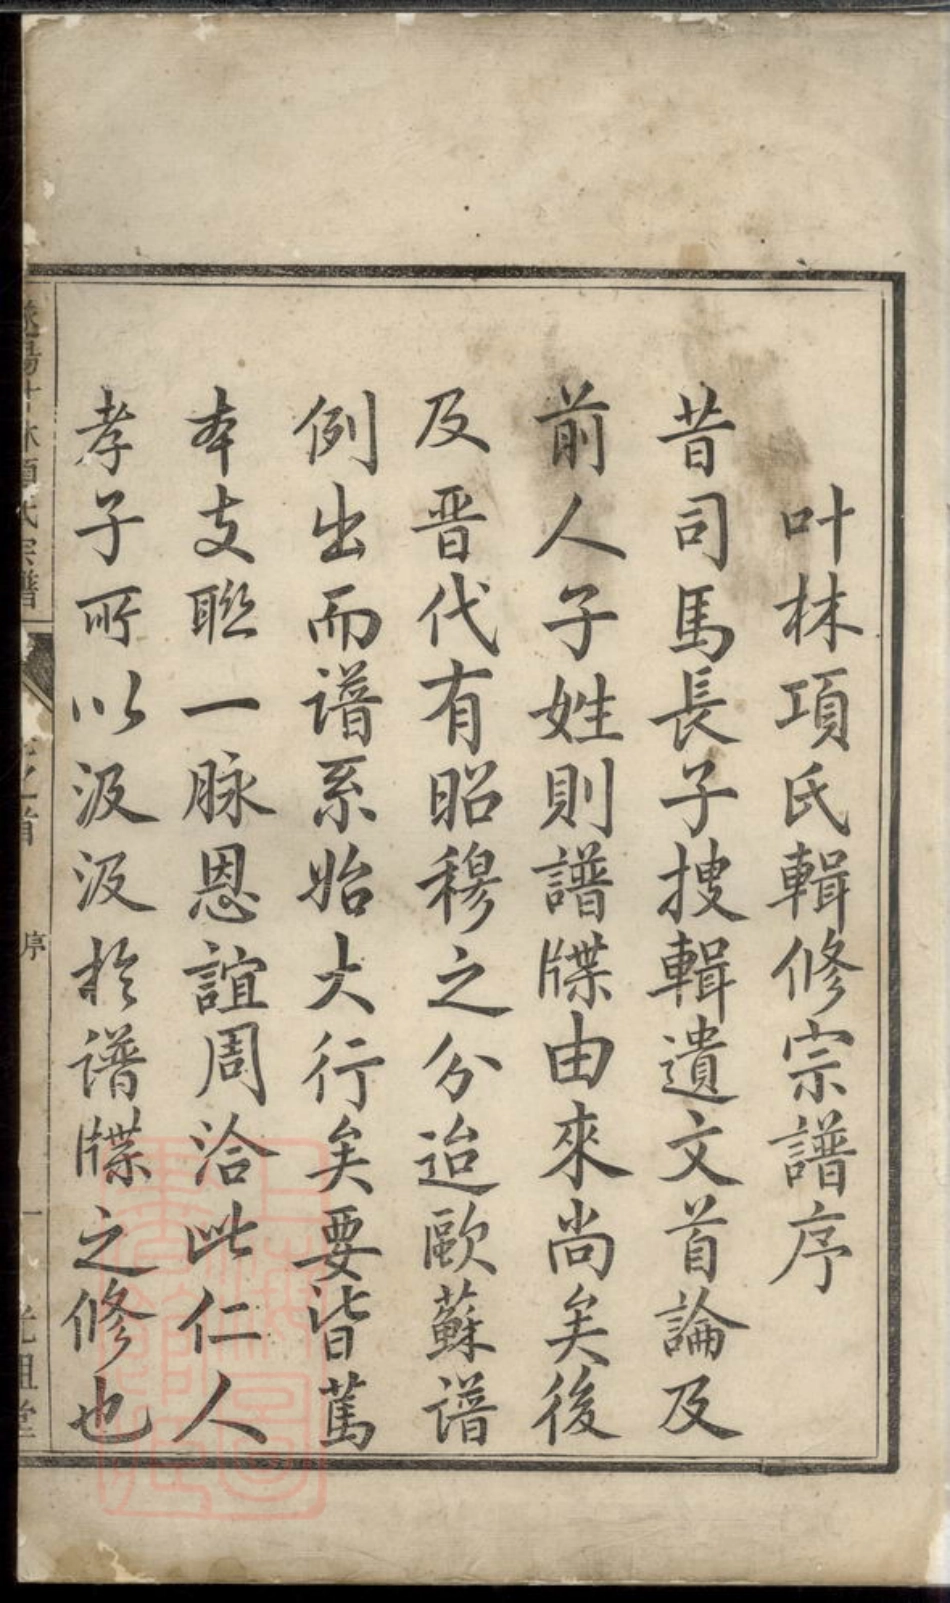 叶林項氏輯修宗譜序
昔司馬長子搜輯遺文首論及
前人子姓則譜牒由來尚矣後
及晋代有昭穆之分迨歐蘇谱
例出而谱系始大行矣要皆篤
本支聮一脉恩誼周洽此仁人
孝子所以汲汲於谱牒之修也
氏宗譜
之首
序
一